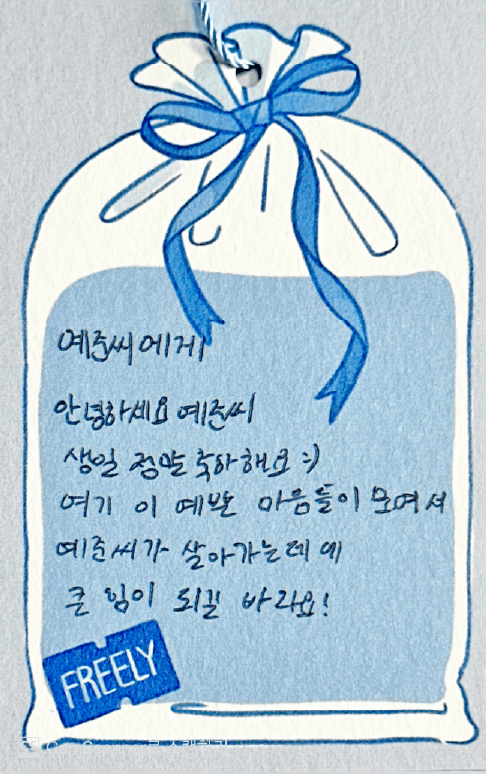 예준씨에게
안녕하세요 예준씨
생일 정말 축하해요 :)
여기 이 예쁜 마음들이 모여서
예준씨가 살아가는데에
큰 힘이 되길 바라요!
FREELY